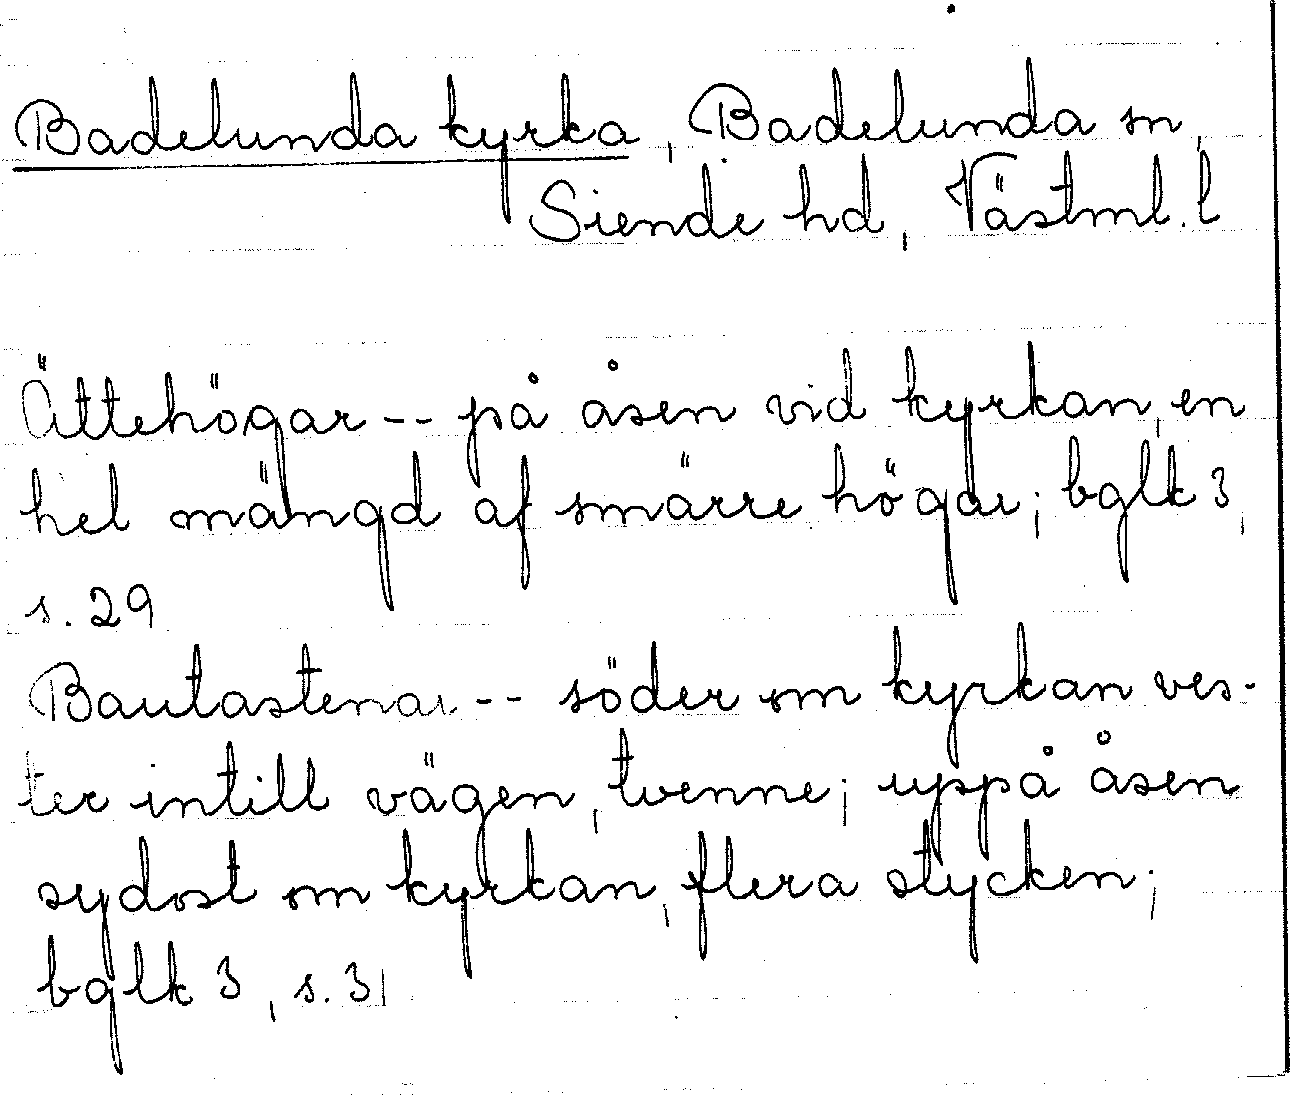 Badelunda kyrka, Badelunda sn,
Siende hd, Västml. l
Ättehögar -- på åsen vid kyrkan, en
hel mängd af smärre högar; bglk 3,
s. 29
Bautastenar -- söder om kyrkan ves-
ter intill vägen, tvenne; uppå åsen
sydost om kyrkan, flera stycken;
bglk 3, s. 31